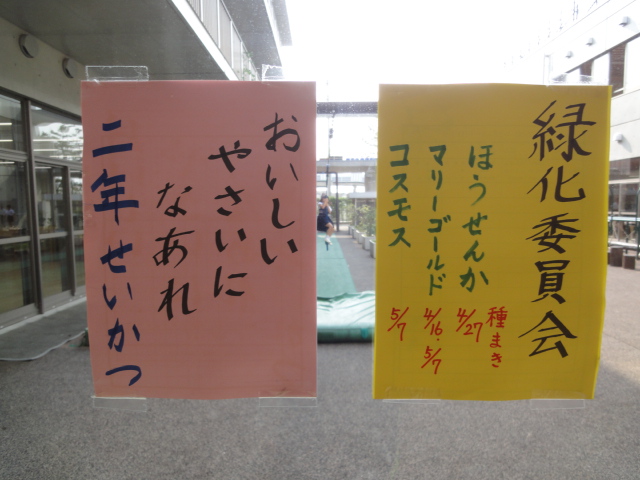 おいしい
やさいに
なあれ
二年せいかつ
緑化委員会
種まき
ほうせんか 4/27
マリーゴールド 4/16・5/7
コスモス 5/7